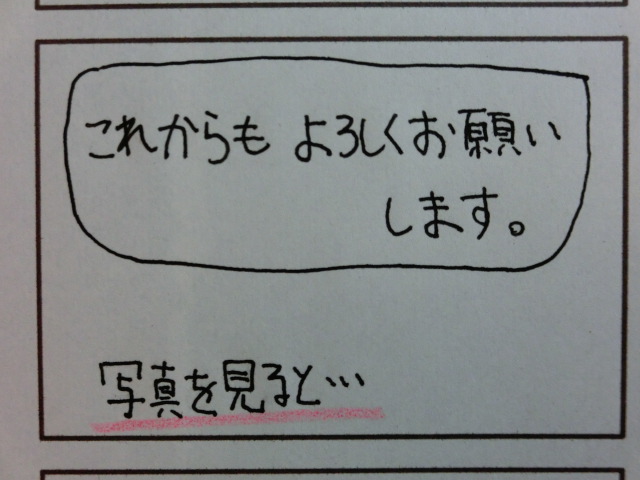 これからも よろしくお願い
します。
写真を見ると…